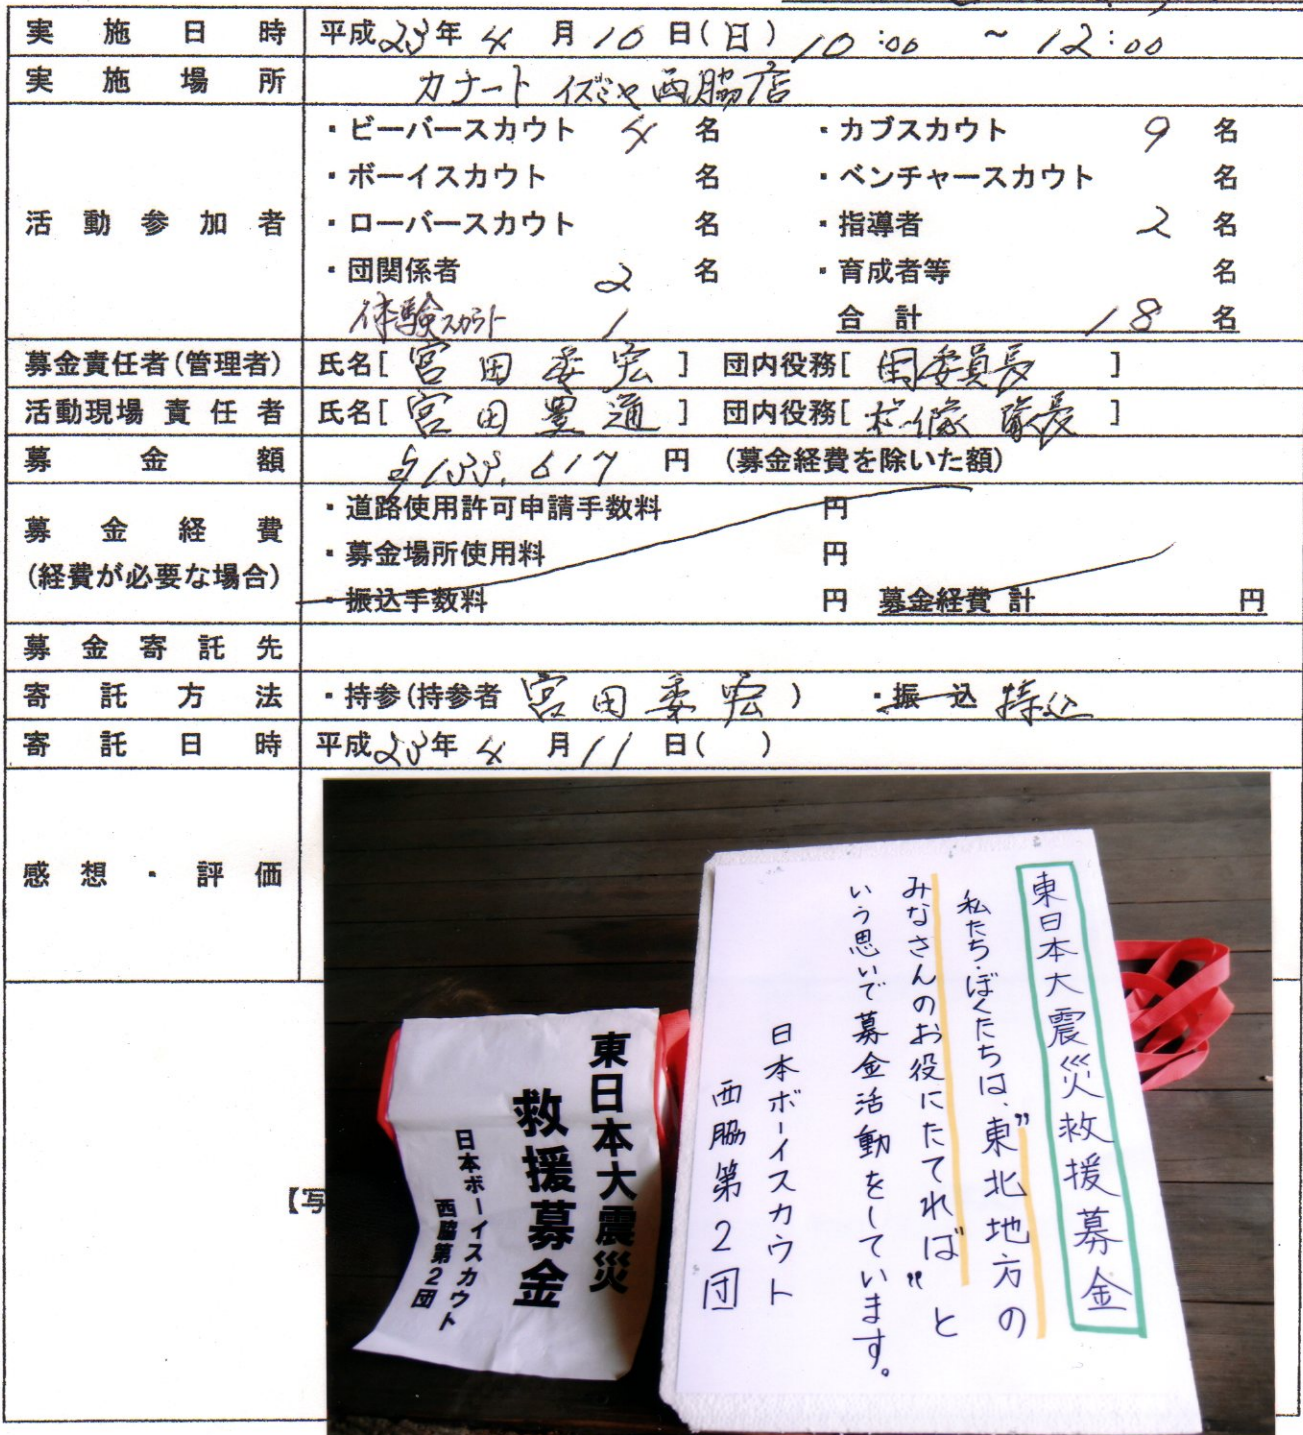 実施日時 平成23年4月10日(日) 10:00 ~ 12:00
実施場所 カナート イズミヤ西脇店
活動参加者
・ビーバースカウト 4 名 ・カブスカウト 9 名
・ボーイスカウト 名 ・ベンチャースカウト 名
・ローバースカウト 名 ・指導者 2 名
・団関係者 2 名 ・育成者等 名
体験スカウト 1 合計 18 名
募金責任者(管理者) 氏名[宮田 宏] 団内役務[団委員長]
活動現場責任者 氏名[宮田 道] 団内役務[隊長]
募金額 ¥133,617 円 (募金経費を除いた額)
募金経費
(経費が必要な場合)
・道路使用許可申請手数料 円
・募金場所使用料 円
・振込手数料 円 募金経費 計 円
募金寄託先
寄託方法 ・持参(持参者 宮田 宏) ・振込 持込
寄託日時 平成23年4月11日( )
感想・評価
【写
東日本大震災救援募金
私たち・ぼくたちは、"東北地方の
みなさんのお役にたてれば"と
いう思いで募金活動をしています。
日本ボーイスカウト
西脇第2団
東日本大震災
救援募金
日本ボーイスカウト
西脇第2団